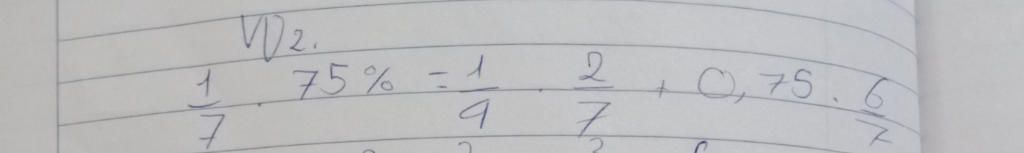 №2.
1/7 · 75% = 1/9 · 2/7 + 0,75 · 6/7